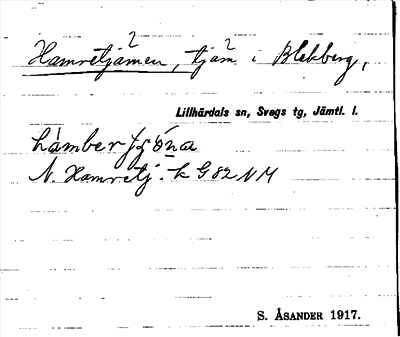 Hamretjämen, tjäm i Blekberg,
Lillhärdals sn, Svegs tg, Jämtl. l.
N. Hamretj. k G 82 NM
S. ÅSANDER 1917.